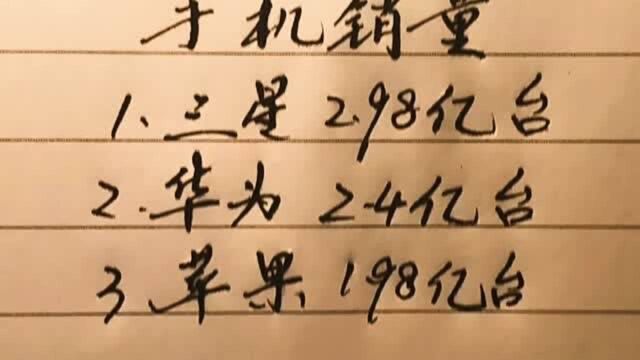 手机销量
1.三星 2.98亿台
2.华为 2.4亿台
3.苹果 1.98亿台